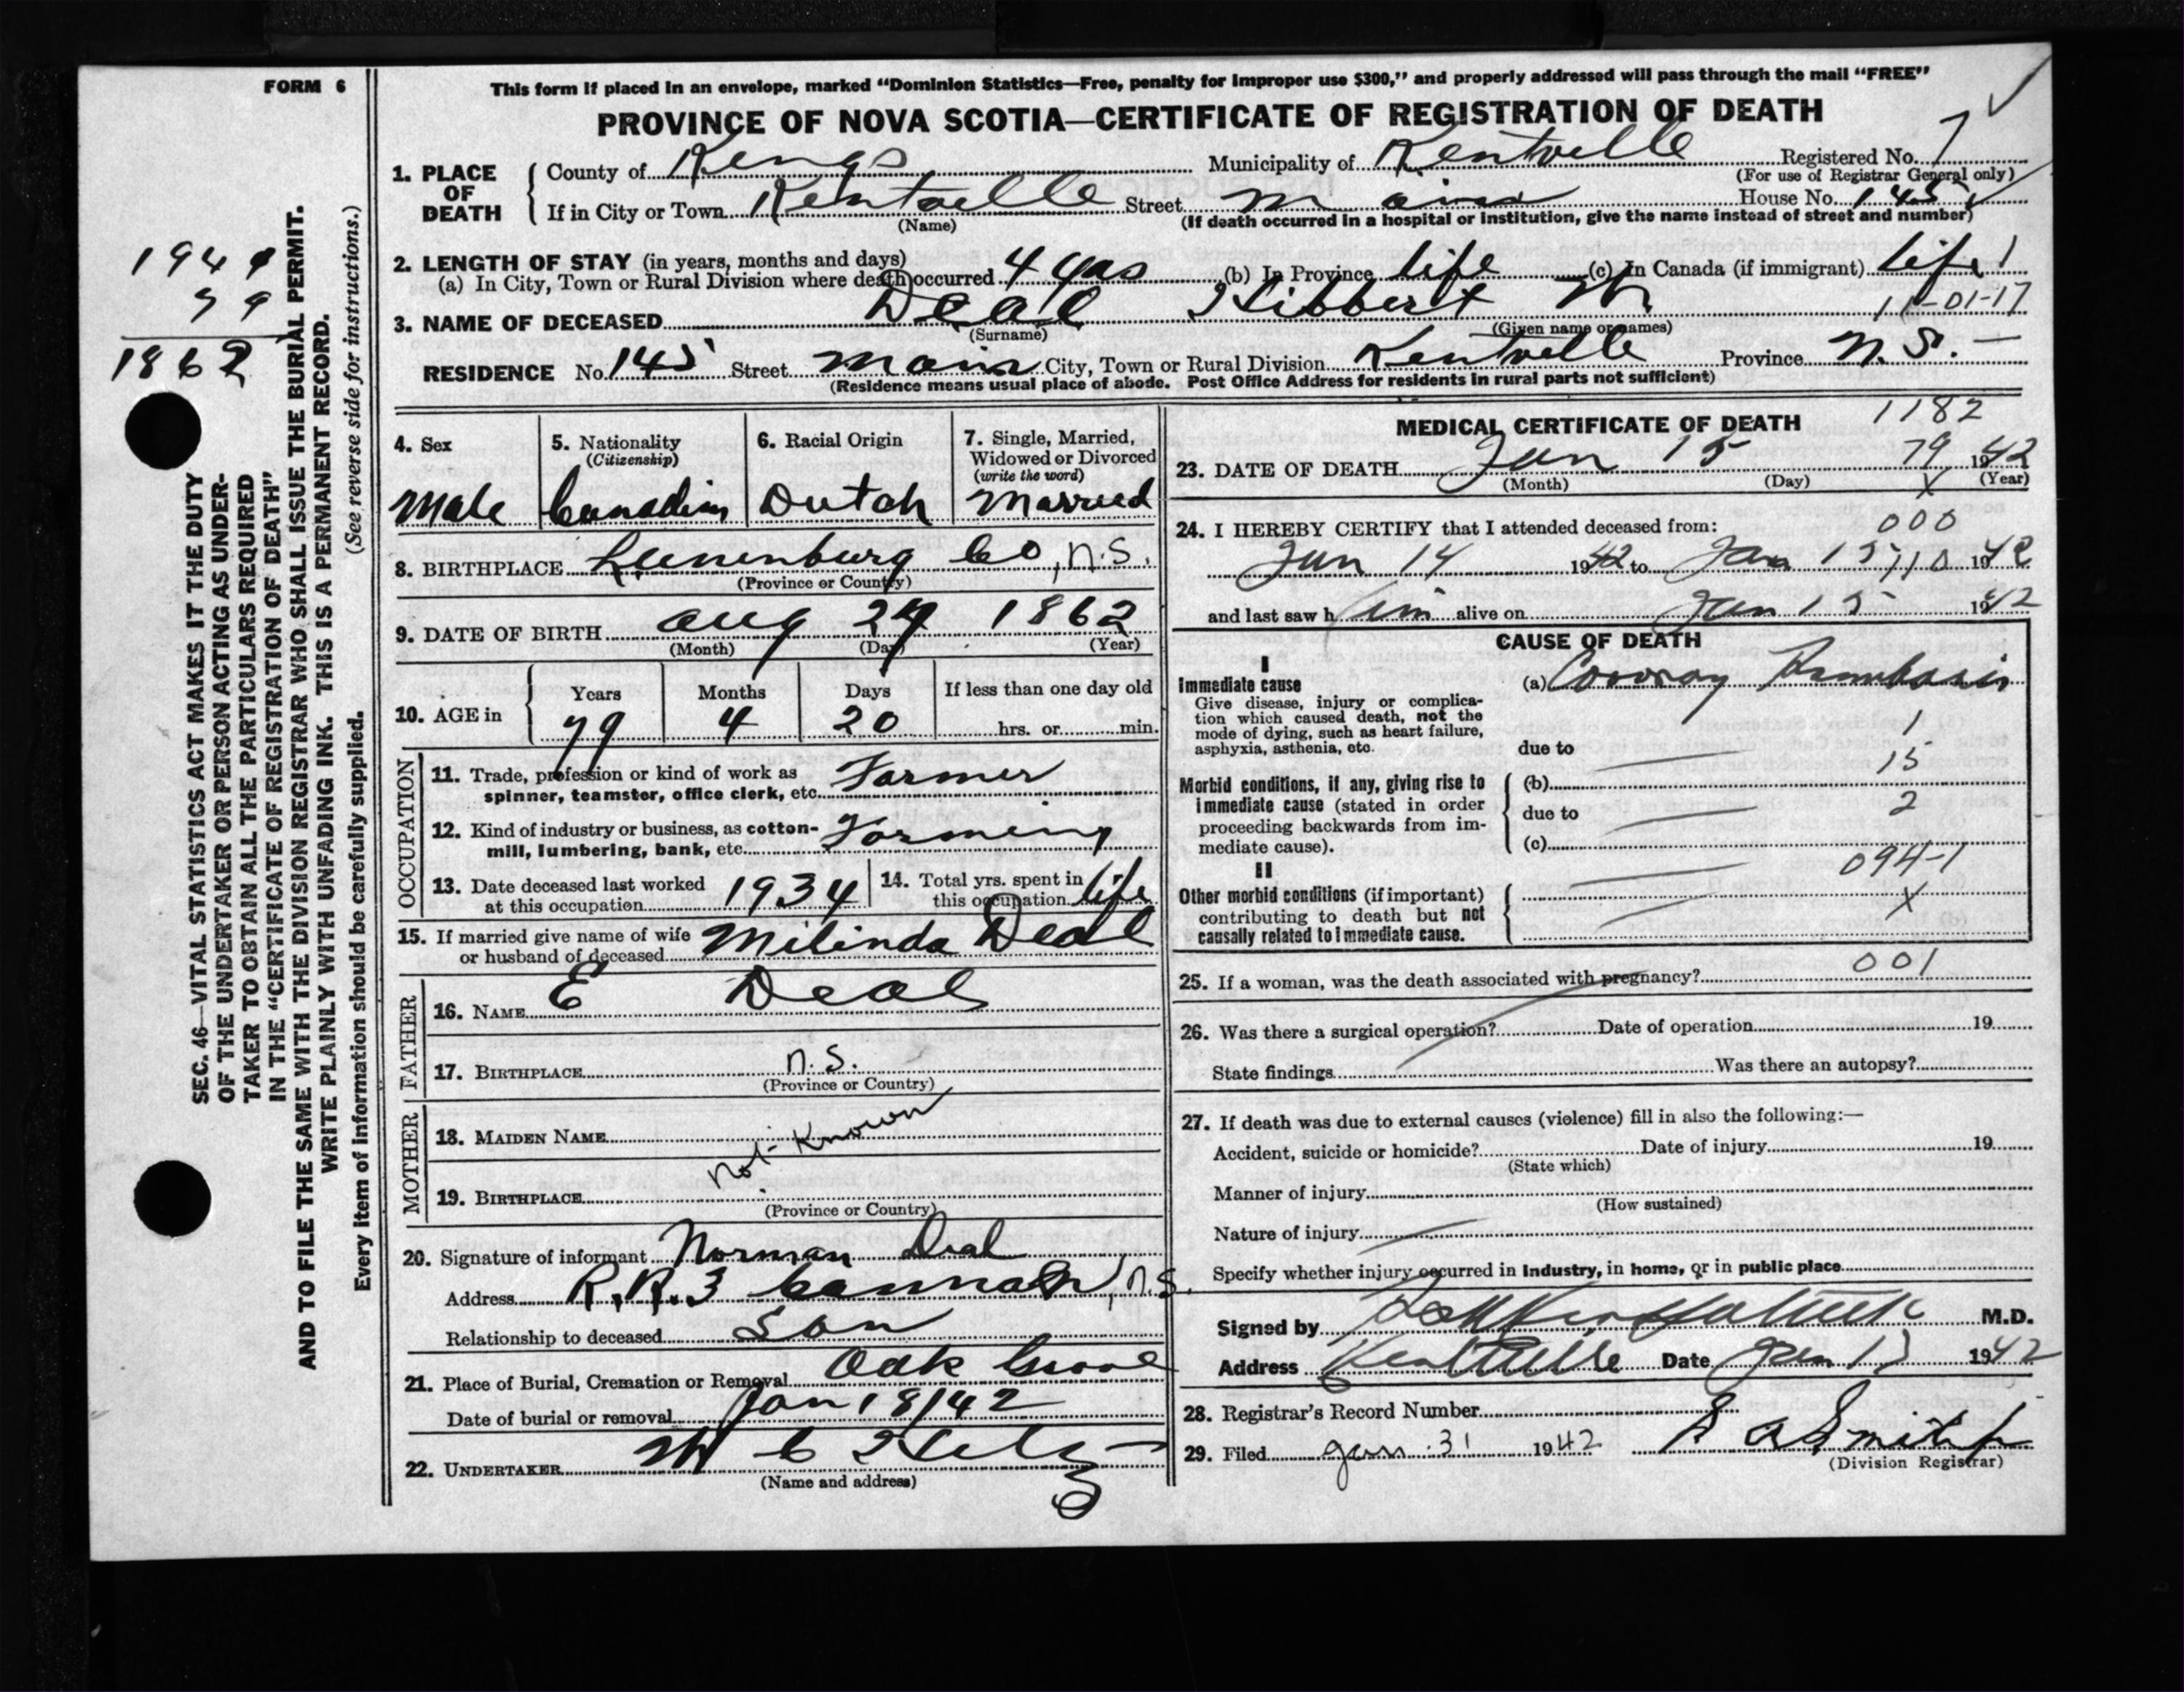 FORM 6
This form if placed in an envelope, marked “Dominion Statistics—Free, penalty for improper use $300,” and properly addressed will pass through the mail “FREE”
PROVINCE OF NOVA SCOTIA—CERTIFICATE OF REGISTRATION OF DEATH
1. PLACE OF DEATH
County of Kings Municipality of Kentville Registered No. 7
(For use of Registrar General only)
If in City or Town Kentville Street Main House No. 145
(Name) (If death occurred in a hospital or institution, give the name instead of street and number)
2. LENGTH OF STAY (in years, months and days)
(a) In City, Town or Rural Division where death occurred 4 yrs (b) In Province life (c) In Canada (if immigrant) life
3. NAME OF DECEASED Deal Hibbert W 11-01-17
(Surname) (Given name or names)
RESIDENCE No. 145 Street Main City, Town or Rural Division Kentville Province N.S. —
(Residence means usual place of abode. Post Office Address for residents in rural parts not sufficient)
4. Sex Male
5. Nationality (Citizenship) Canadian
6. Racial Origin Dutch
7. Single, Married, Widowed or Divorced (write the word) Married
8. BIRTHPLACE Lunenburg Co, N.S.
(Province or Country)
9. DATE OF BIRTH Aug 24 1862
(Month) (Day) (Year)
10. AGE in
Years Months Days If less than one day old
79 4 20 hrs. or min.
OCCUPATION
11. Trade, profession or kind of work as spinner, teamster, office clerk, etc. Farmer
12. Kind of industry or business, as cotton-mill, lumbering, bank, etc. Farming
13. Date deceased last worked at this occupation 1934
14. Total yrs. spent in this occupation life
15. If married give name of wife or husband of deceased Milinda Deal
FATHER
16. NAME E Deal
17. BIRTHPLACE N.S.
(Province or Country)
MOTHER
18. MAIDEN NAME
Not Known
19. BIRTHPLACE
(Province or Country)
20. Signature of informant Norman Deal
Address R.R.3 Cannan, N.S.
Relationship to deceased Son
21. Place of Burial, Cremation or Removal Oak Grove
Date of burial or removal Jan 18/42
22. UNDERTAKER W C
(Name and address)
MEDICAL CERTIFICATE OF DEATH 1182
23. DATE OF DEATH Jan 15 79 1942
(Month) (Day) X (Year)
24. I HEREBY CERTIFY that I attended deceased from: 000
Jan 14 1942 to Jan 15 1942
and last saw him alive on Jan 15 1942
CAUSE OF DEATH
I
Immediate cause
Give disease, injury or complication which caused death, not the mode of dying, such as heart failure, asphyxia, asthenia, etc.
(a) Coronary Thrombosis
1
due to
15
Morbid conditions, if any, giving rise to immediate cause (stated in order proceeding backwards from immediate cause).
(b)
due to 2
(c)
094-1
II
Other morbid conditions (if important) contributing to death but not causally related to immediate cause.
X
25. If a woman, was the death associated with pregnancy? 001
26. Was there a surgical operation? Date of operation 19
State findings Was there an autopsy?
27. If death was due to external causes (violence) fill in also the following:—
Accident, suicide or homicide? Date of injury 19
(State which)
Manner of injury
(How sustained)
Nature of injury
Specify whether injury occurred in industry, in home, or in public place
Signed by M.D.
Address Kentville Date Jan 1942
28. Registrar's Record Number
29. Filed Jan. 31 1942 Smith
(Division Registrar)
1941
79
1862
SEC. 46—VITAL STATISTICS ACT MAKES IT THE DUTY
OF THE UNDERTAKER OR PERSON ACTING AS UNDER-
TAKER TO OBTAIN ALL THE PARTICULARS REQUIRED
IN THE “CERTIFICATE OF REGISTRATION OF DEATH”
AND TO FILE THE SAME WITH THE DIVISION REGISTRAR WHO SHALL ISSUE THE BURIAL PERMIT.
WRITE PLAINLY WITH UNFADING INK. THIS IS A PERMANENT RECORD.
Every item of information should be carefully supplied. (See reverse side for instructions.)